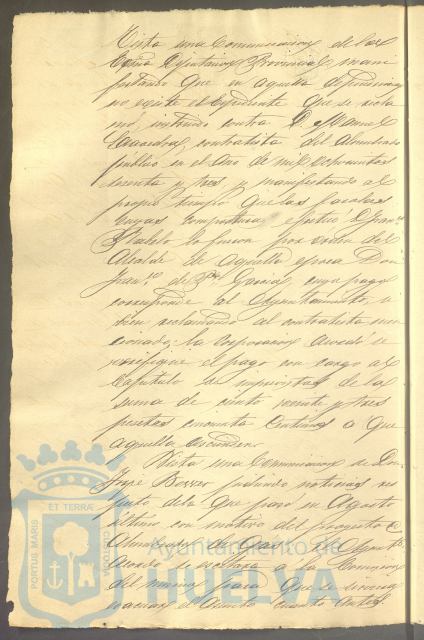 Vista una Comunicacion de la
Exma Diputacion Provincial mani
festando que en aquella dependencia
no existe el Expediente que se recla
mó, instruido contra D. Manuel
Saavedra, contratista del Alumbrado
público en el Año de mil ochocientos
setenta y tres y manifestando al
propio tiempo que las farolas
cuya compostura efectuó D. Fran.co
lo fueron por orden del
Alcalde de aquella epoca Don
Fran.co de P.la Garcia, cuyo pago
corresponde al Ayuntamiento, ó
bien reclamando al contratista men
cionado; la Corporacion acordó se
verifique el pago con cargo al
Capitulo de imprevistos de la
suma de ciento veinte y tres
pesetas cincuenta centimos á que
aquella asciende.
Vista una Comunicacion de Don
José pidiendo noticias res
pecto de la que pasó en Agosto
último con motivo del proyecto de
Alumbrado de gas, el Ayunto
Acordó se a la Comision
del mismo para que se sirva
evacuar el cuanto antes.
PORTUS MARIS ET TERRAE CUSTODIA
Ayuntamiento de
HUELVA